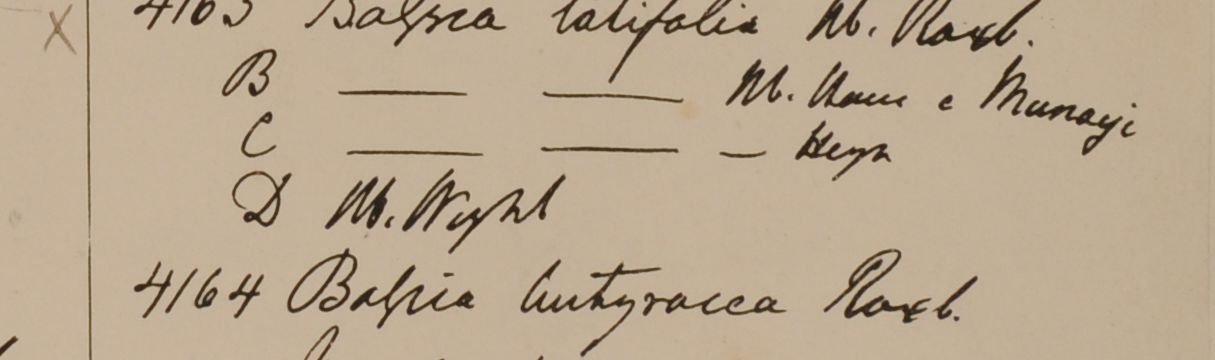 4163 Bassia latifolia Hb. Roxb.
B — — Hb. Ham e Munayi
C — — — Heyn
D Hb. Wight
4164 Bassia butyracea Roxb.